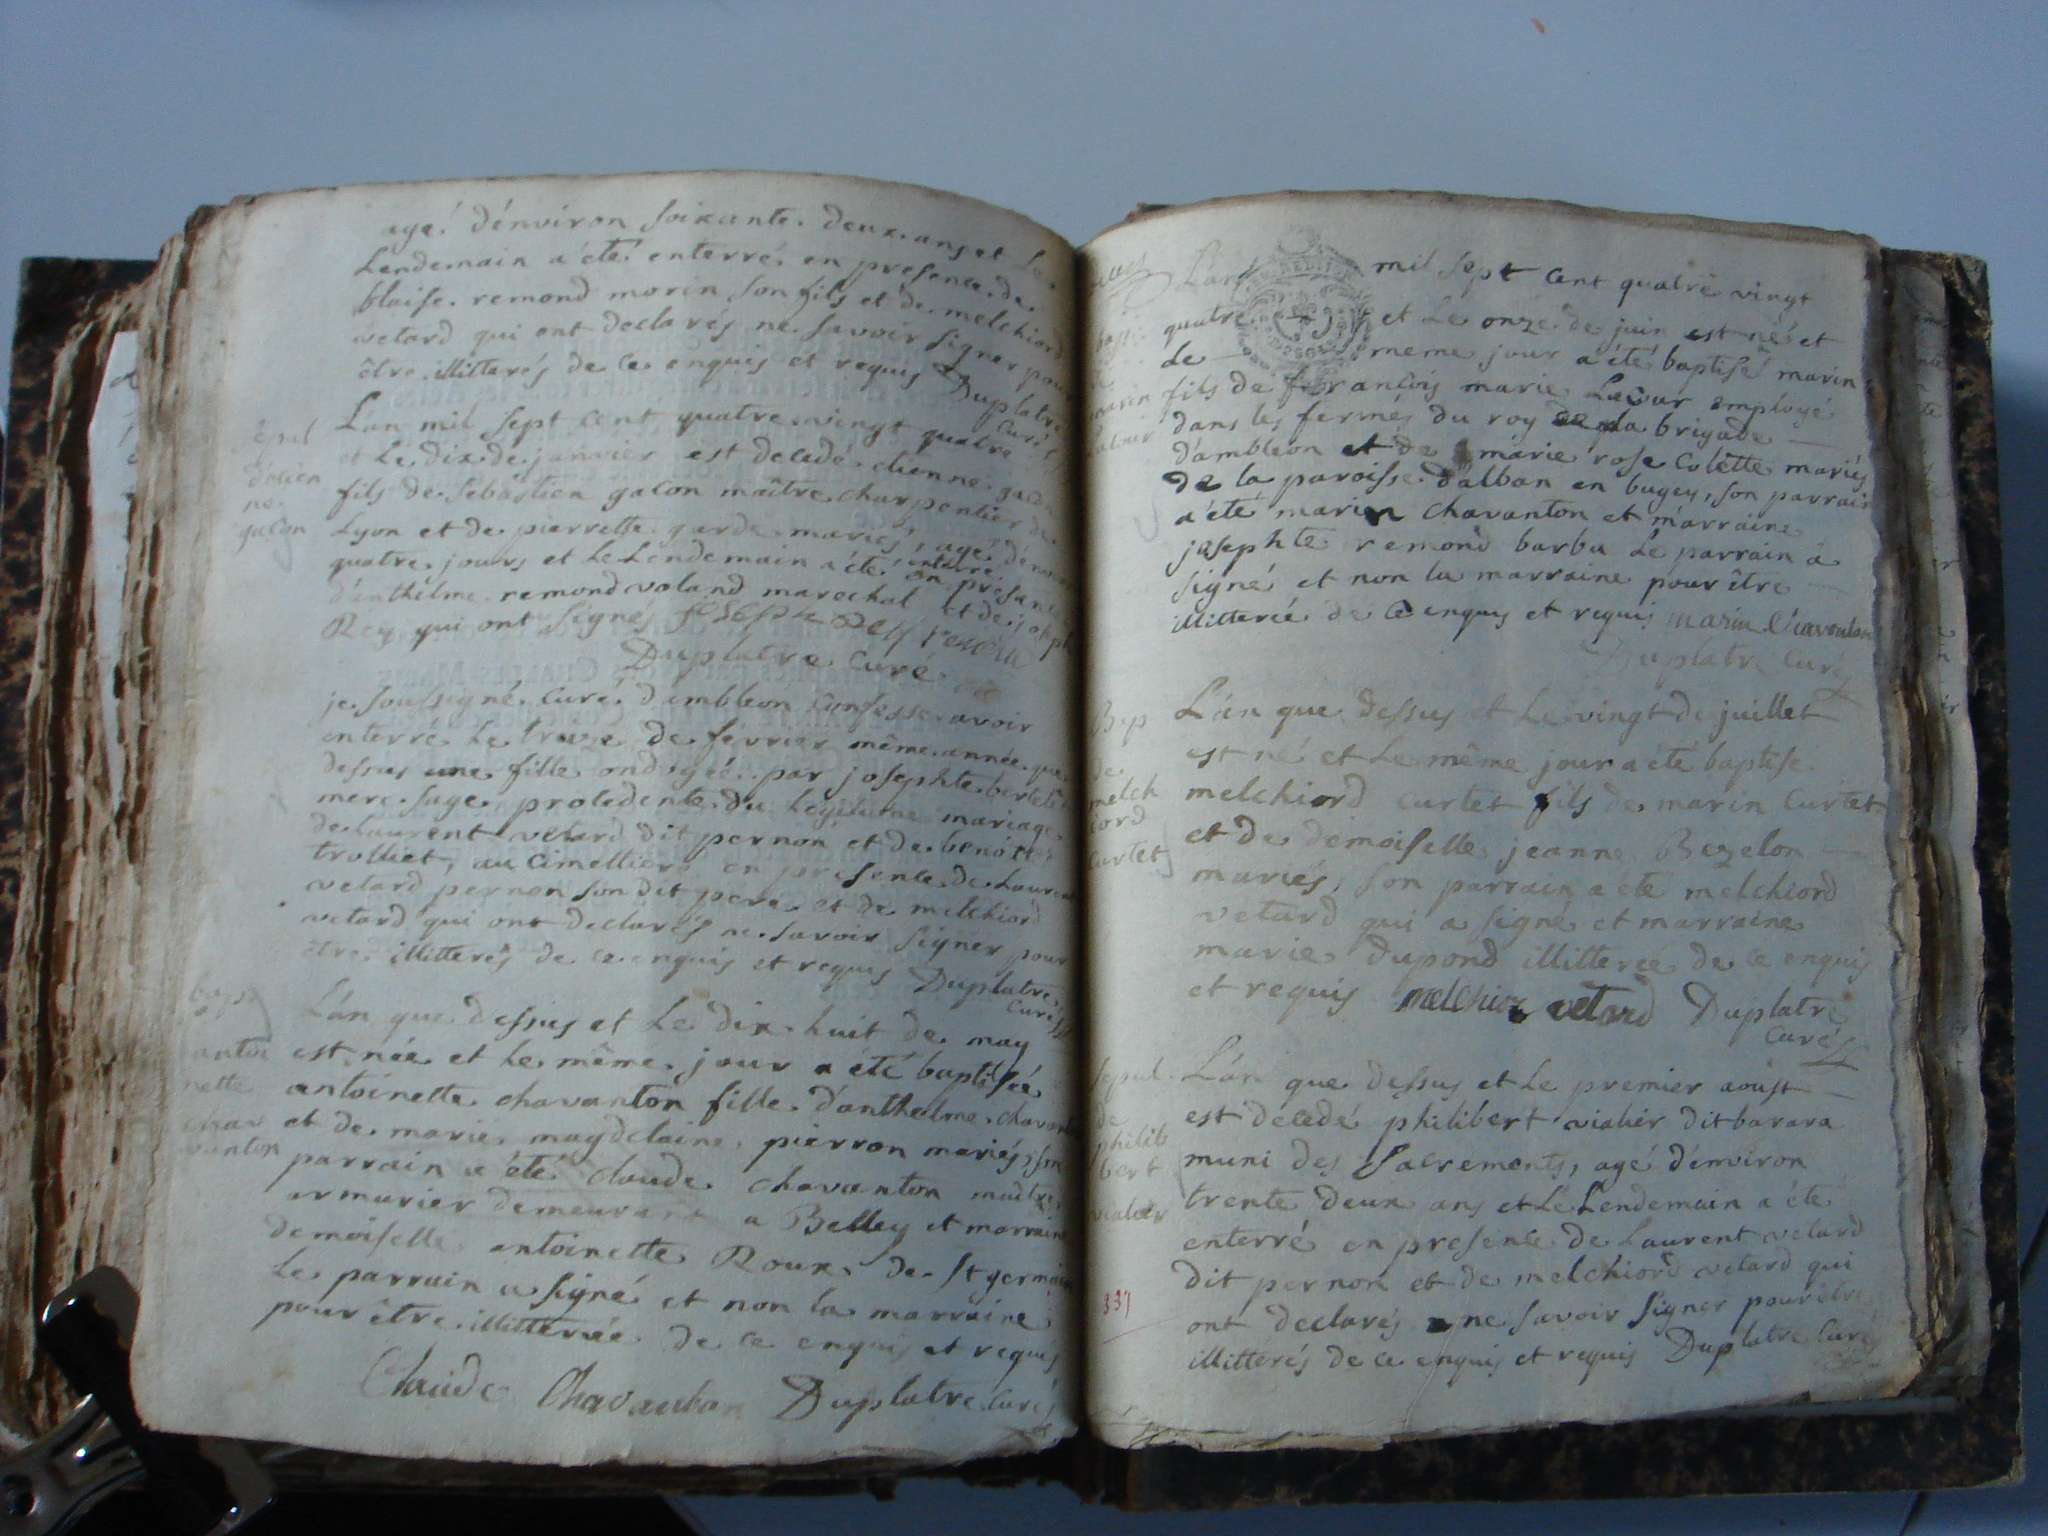 agé d'énviron soixante deux ans et le
Lendemain a été enterré en presence de
blaise remond morin son fils et de melchiord
vetard qui ont declarés ne savoir signer pour
être illitterés de ce enquis et requis Duplatre
Curé
sepul
d'étien
ne
gacon
L'an mil sept cent quatre vingt quatre
et Le dix de janvier est decedé etienne gacon
fils de sebastien gacon maître charpentier de
Lyon et de pierrette garde mariés, agé d'énviron
quatre jours et Le Lendemain a été enterré en présance
d'anthelme remond voland marechal et de joseph
Rey qui ont signés joseph Rey remond
Duplatre Curé
je soussigné Curé d'ambleon Confesse avoir
enterré Le treize de fevrier même année que
dessus une fille ondoyéé par josephte bertet
mere sage procedente du Legitime mariage
de laurent vetard dit pernon et de benoite
trolliet, au Cimettiere en presence de Laurent
vetard pernon son dit pere et de melchiord
vetard qui ont declarés ne savoir signer pour
être illitterés de ce enquis et requis Duplatre
Curé
bapt
antoi
nette
chav
vanton
L'an que dessus et Le dix huit de may
est née et Le même jour a été baptisée
antoinette chavanton fille d'anthelme chavanton
et de marie magdelaine pierron mariés, son
parrain a été claude chavanton maître
armurier demeurant a Belley et marraine
demoiselle antoinette Roux de st germain
Le parrain a signé et non la marraine
pour être illitterée de ce enquis et requis
Claude Chavanton Duplatre Curé
bapt
de
marin
Lacour
L'an mil sept cent quatre vingt
quatre et Le onze de juin est né et
Le meme jour a été baptisé marin
fils de françois marie Lacour employé
dans les fermes du roy de la brigade
d'ambleon et de marie rose Colette mariés
de la paroisse d'alban en bugey, son parrain
a été marin chavanton et marraine
josephte remond barbu Le parrain a
signé et non la marraine pour être
illitterée de ce enquis et requis marin Chavanton
Duplatre Curé
Bap
de
melch
iord
Curtet
L'an que dessus et Le vingt de juillet
est né et Le même jour a été baptisé
melchiord Curtet fils de marin Curtet
et de demoiselle jeanne Bezelon
mariés, son parrain a été melchiord
vetard qui a signé et marraine
marie Dupond illitterée de ce enquis
et requis melchior vetard Duplatre
Curé
sepul
de
philib
bert
vialier
L'an que dessus et Le premier aoust
est décedé philibert vialier dit barara
muni des sacrements, agé d'énviron
trente deux ans et Le Lendemain a été
enterré en presence de Laurent vetard
dit pernon et de melchiord vetard qui
ont declarés ne savoir signer pour être
illitterés de ce enquis et requis Duplatre Curé
337